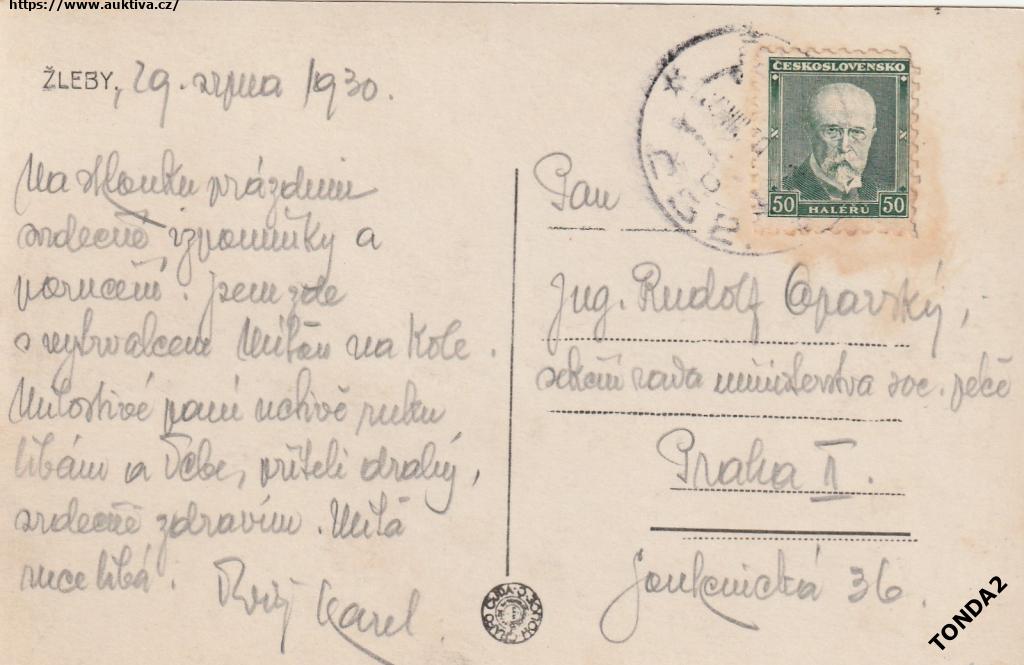 https://www.auktiva.cz/
ŽLEBY, 29. srpna 1930.
Na sklonku prázdnin
srdečné vzpomínky a
poručení. Jsem zde
s na kole.
Milostivé paní uctivě ruku
líbám a Tebe, příteli drahý,
srdečně zdravím.
ruce líbá. Tvůj Karel.
ČESKOSLOVENSKO
50 HALÉŘŮ 50
Pan
Ing. Rudolf Opavský,
sekční rada ministerstva soc. péče
Praha II.
Soukenická 36.
TONDA2